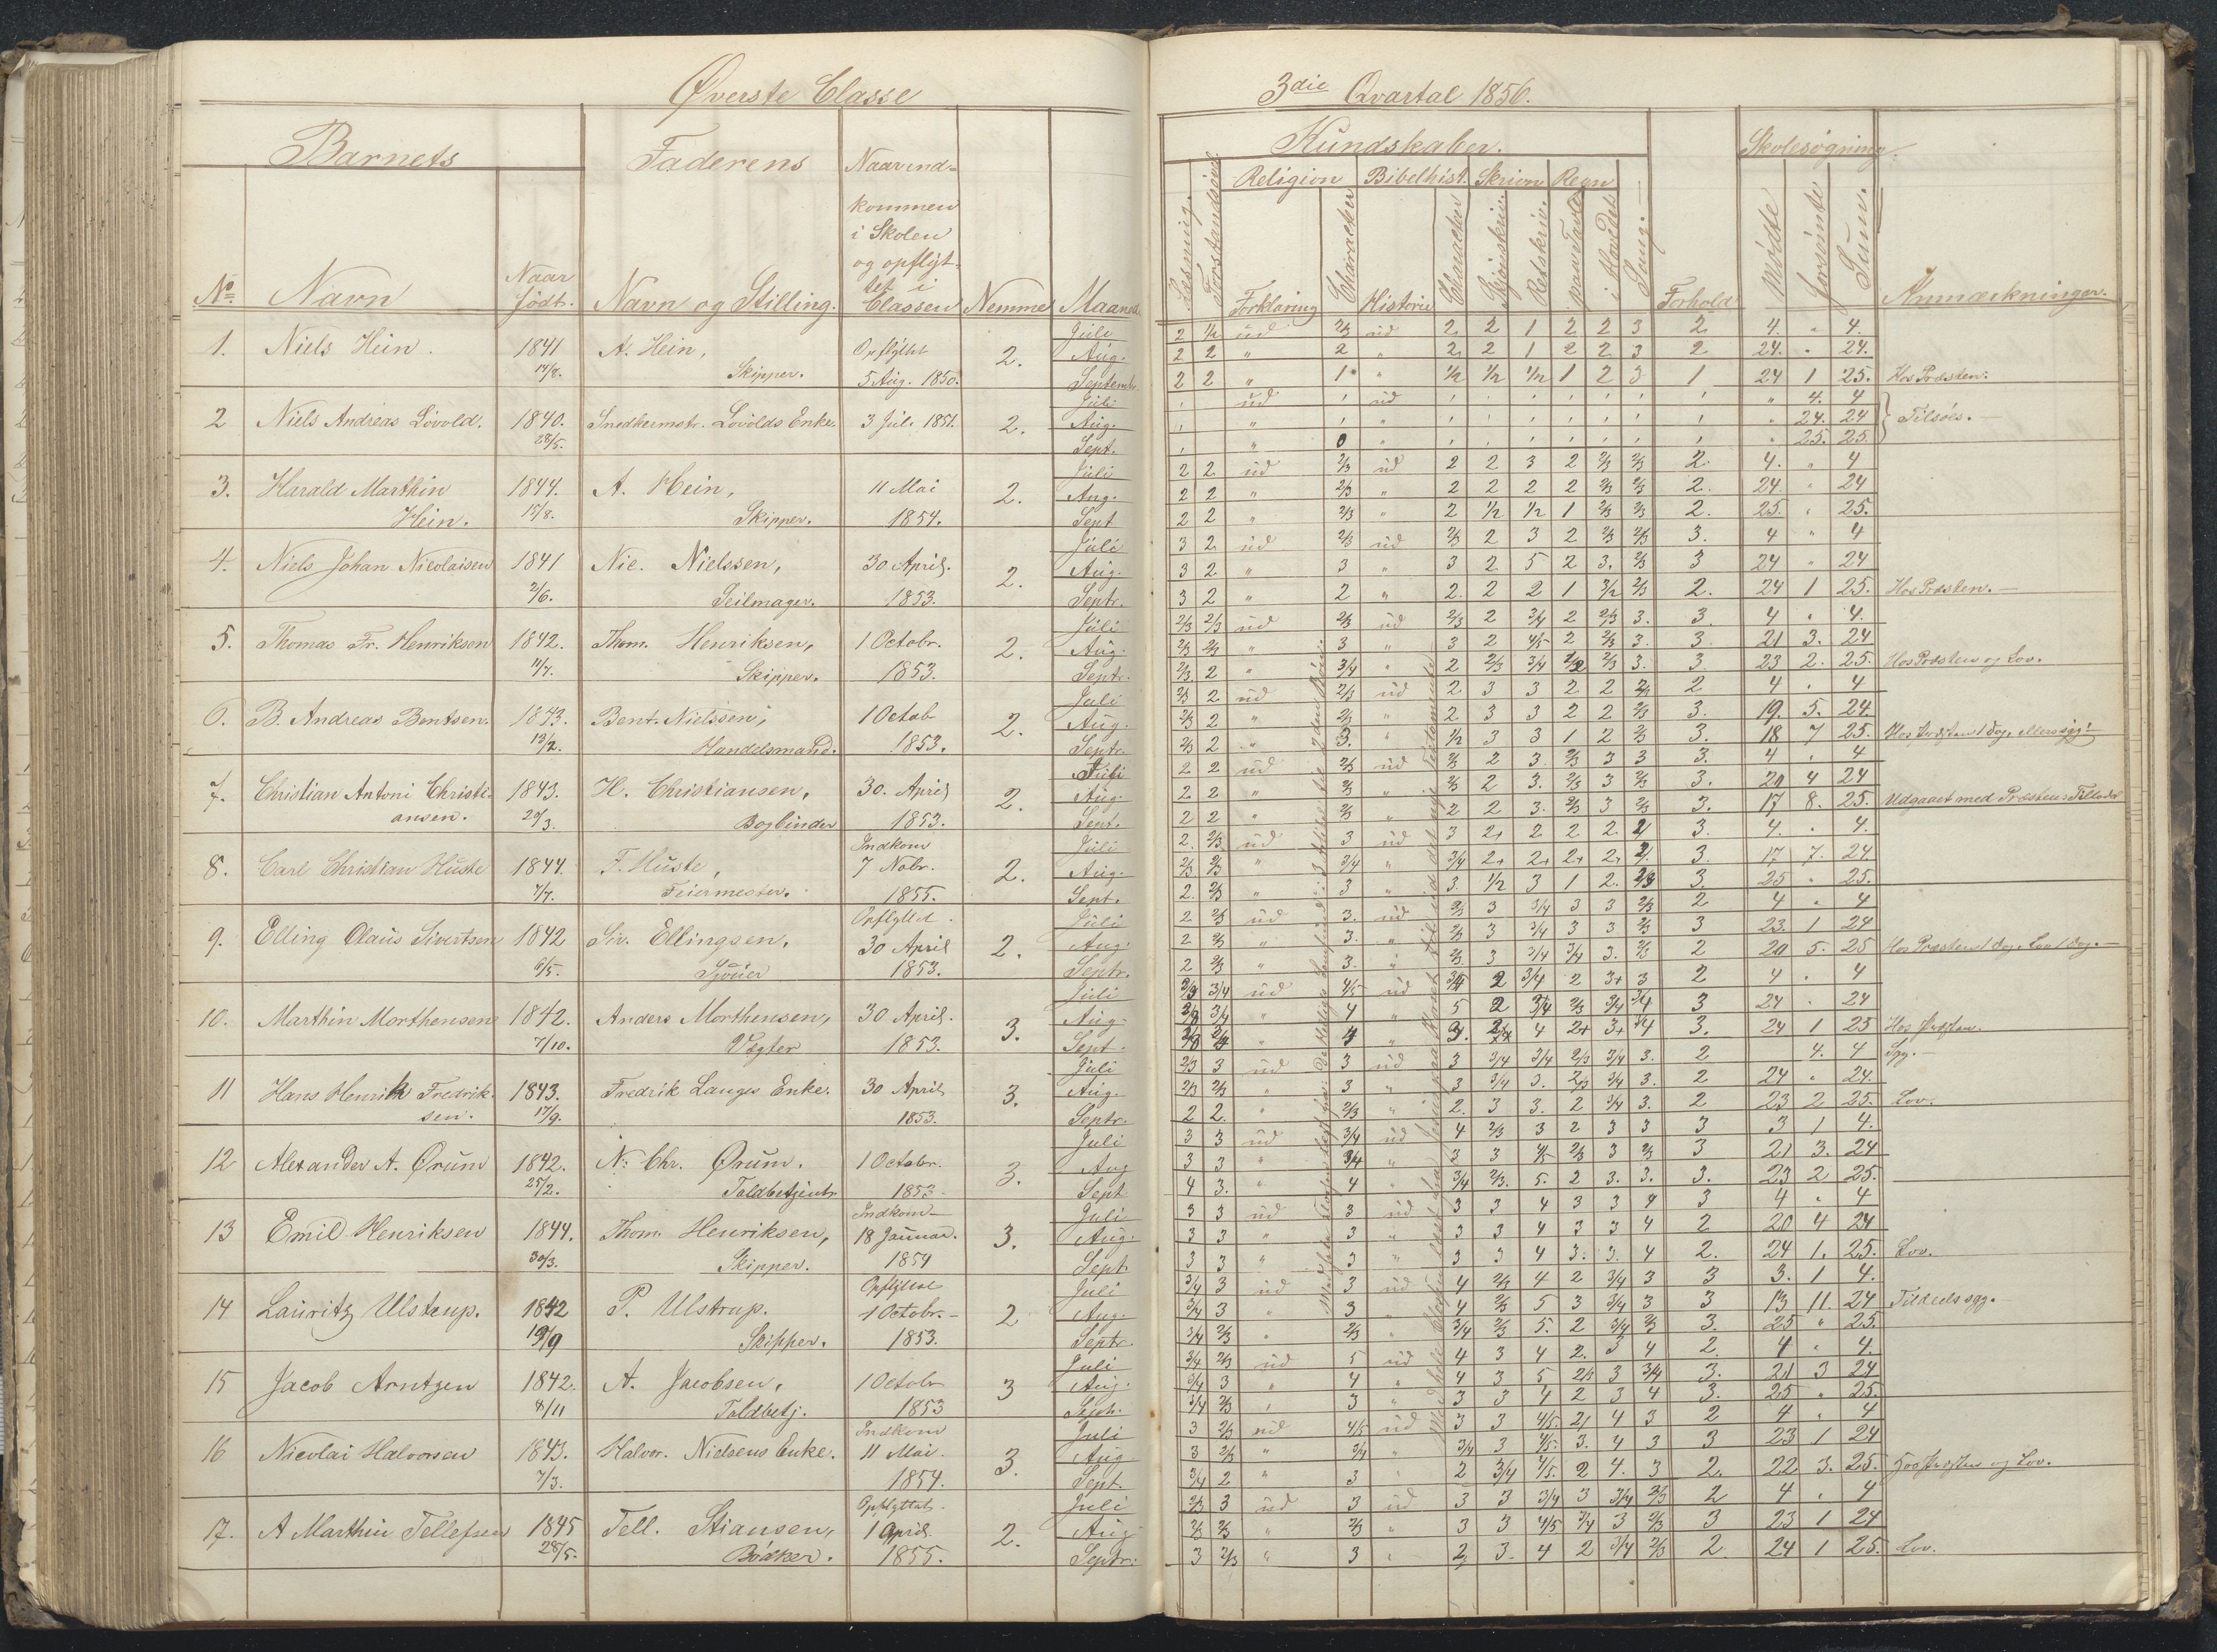 Øverste Classe
Barnets
Faderens
Naar ind-
kommen
i Skolen
og opflyt-
tet i
Classen
Nemme
Maaned.
No
Navn
Naar
født.
Navn og Stilling.
1. Niels Hein. 1841 A. Hein, Opflyttet 2. Juli
14/8. Skipper. 5 Aug. 1850. Aug.
Septembr.
2 Niels Andreas Lövold. 1840. Snedkermstr. Lövolds Enke. 3 Juli 1851. 2. Juli
28/5. Aug.
Sept.
3. Harald Marthin 1844. A. Hein, 11 Mai 2. Juli
Hein. 15/8. Skipper. 1854. Aug.
Sept
4. Niels Johan Nicolaisen 1841 Nic. Nielssen, 30 April. 2. Juli
2/6. Seilmager. 1853. Aug.
Septr.
5. Thomas Fr. Henriksen 1842. Thom. Henriksen, 1 Octobr. 2. Juli
11/7. Skipper. 1853. Aug.
Septr.
6. B. Andreas Bentsen. 1843. Bent. Nielssen, 1 Octob 2. Juli
13/2. Handelsmand. 1853. Aug.
Septr.
7. Christian Antoni Christi- 1843. H. Christiansen, 30. April 2. Juli
ansen. 20/3. Bogbinder 1853. Aug.
Sept.
8. Carl Christian Huste 1844. F. Huste, Indkom 2. Juli
7/7. Feiermester. 7 Nobr. Aug.
1855. Sept.
9. Elling Olaus Sivertsen 1842 Siv. Ellingsen, Opflyttet 2. Juli
6/5. Sjöuer 30 April Aug.
1853. Septr.
10. Marthin Morthensen 1842. Anders Morthensen, 30 April. 3. Juli
7/10. Vægter 1853. Aug.
Sept.
11 Hans Henrik Fredrik- 1843. Fredrik Langes Enke. 30 April 3. Juli
sen. 17/9. 1853. Aug.
Septr.
12 Alexander A. Örum 1842. N. Chr. Örum. 1 Octobr. 3. Juli
25/2. Toldbetjent 1853. Aug
Sept
13 Emil Henriksen 1844. Thom. Henriksen, Indkom 3. Juli
30/3. Skipper. 18 Januar. Aug.
1854 Sept.
14 Lauritz Ulstrup. 1842 P. Ulstrup. Opflyttet 2 Juli
19/9 Skipper. 1 Octobr. Aug.
1853. Septr.
15 Jacob Arntzen 1842. A. Jacobsen, 1 Octobr 3 Juli
8/11 Toldbetj. 1853 Aug.
Septr.
16 Nicolai Halvorsen 1843. Halvor. Nielsens Enke. Indkom 3. Juli
7/3. 11 Mai. Aug
1854. Sept.
17. A Marthin Tellefsen 1845 Tell. Stiansen, Opflyttet. 2. Juli
28/5. Bödker. 1 April. Aug
1855. Septr.
3die Qvartal 1856.
Kundskaber.
Skolesøgning.
Religion Bibelhist. Skrivn Regn
Læsning. Forstandsöv. Forklaring Character Historie Character Skjönskriv. Retskriv. paa Tavle i Hovedet Sang. Forhold Mödte forsömte Sum. Anmærkninger.
2 1/2 ud 2/3 ud 2 2 1 2 2 3 2 4. " 4.
2 2 " 2 " 2 2 1 2 2 3 2 24. " 24.
2 2 " 1 " 1/2 1/2 1/2 1 2 3 1 24 1 25. Hos Præsten.
ud ud " 4. 4
" 24. 24 Tilsöes.
0 " 25. 25.
2 2 ud 2/3 ud 2 2 3 2 2/3 2/3 2. 4. " 4
2 2 " 2/3 " 2 2 2 2 2/3 2/3 2. 24. " 24
2 2 " 2/3 " 2 1/2 1/2 1 2/3 2/3 2. 25. " 25.
3 2 ud 2/3 ud 2/3 2 3 2 2/3 2/3 3. 4 " 4
3 2 " 3 " 3 2 5 2 3. 2/3 3 24 " 24
3 2 " 2 " 2. 2 2 1 3/2 2/3 2. 24 1 25. Hos Præsten.
2/3 2/3 ud 2/3 ud 2/3 2 3/4 2 2/3 3. 3. 4 " 4.
2/3 2/3 " 3 " 3 2 4/5 2 2/3 3. 3. 21 3. 24
2/3 2 " 3/4 " 2 2/3 3/4 1/2 2/3 3. 3. 23 2. 25. Hos Præsten og Lov.
2/3 2 ud 2/3 ud 2 3 3 2 2 2/3 2 4 " 4
2/3 2 " 2/3 " 2 3 3 2 2 2/3 3. 19. 5. 24.
2/3 2 " 3. " 1/2 3 3 1 2 2/3 3. 18 7 25. Hos Præsten 1 Dag, ellers syg.
2 2 ud 2/3 ud 2/3 2 3 2/3 3 3 3. 4 " 4
2 2 " 2/3 " 2/3 2 3. 2/3 3 2/3 3. 20 4 24
2 2 " 2/3 " 2 2 3. 2/3 3 2/3 3. 17 8. 25. Udgaaet med Præstens Tillad.
2. 2/3 ud 3 ud 3 2+ 2 2 2 2/ 3. 4. " 4.
2/3 2/3 " 3/4 " 3/4 2+ 2+ 2+ 2+ 2/ 3. 17 7. 24.
2. 2/3 " 3 " 3. 1/2 3 1 2. 2/3 3. 25 " 25.
2 2/3 ud 3. ud 2/3 3 3/4 3 3 2/3 2 4 " 4
2 2/3 " 3. " 2/3 3 3/4 3 3 2/3 3 23. 1 24
2 2/3 " 3. " 2/3 3 3/4 3/4 3. 2/3 2 20 5. 25 Hos Præsten 1 Dag, Lov 1 Dag.
2/3 3/4 ud 4/5 ud 3/4 2 3/4 2 3+ 3 2 4 " 4
2/3 3/4 " 4 " 5 2 3/4 2/3 3/4 3/4 3 24 " 24
4 " 3. 4 2+ 3+ 3/4 3. 24 1 25 Hos Præsten.
2/3 3 ud 3 ud 3 3/4 3/4 2/3 3/4 3. 2 4. 4 Syg.
2/3 2/3 " 3 " 3 3/4 3. 2/3 3/4 3. 2 24 " 24.
2 2. " 2/3 " 2. 3 3. 2 3/4 3. 2 23 2 25. Lov.
3 3 ud 3/4 ud 4 2/3 3 2 3 3 3 3 1 4.
3 3 " 3/4 " 3 3 4/5 2/3 3 2/3 3 21 3. 24
4 3. " 4 " 3/4 2/3. 5. 2 3. 3. 3. 23 2 25.
3 3 ud 3 ud 3 3 4 3 3 4 3 4 " 4
3 3 " 3 " 3 3 4 3 3 4 2 20 4 24
3 3 " 3 " 3 3 4 3. 3. 4 2. 24 1. 25. Lov.
3/4 3 ud 3 ud 4 2/3 4 2 3/4 3 3 3. 1 4.
3/4 3 " 3 " 4 2/3 5 3 3/4 3 3 13 11. 24 Tildeels syg.
3/4 2/3 " 2/3 " 3/4 2/3 5. 2 3/4 2/3 3. 25 " 25.
3/4 2/3 ud 5 ud 4 3 4 2. 3 4 2. 4 " 4.
3/4 3 " 4 " 4 3 5 2/3 3 3/4 3. 21 3 24
3/4 2/3 " 3 " 3 3 4 2 3 4 3. 25 " 25.
3 2/3 ud 4/5 ud 3 3 4/5. 2/ 4 3 2 4 " 4
3 2/3 " 3/4 " 3/4 3 4/5. 3. 4 3 3 23 1 24
3/4 2 " 3 " 2 3/4 4/5. 2 4. 3 2. 22 3. 25. Hos Præsten og Lov.
2/3 3 ud 3 ud 3 3 3/4 3 3/4 2/3 2 4 " 4
2/3 2/3 " 2/3 " 3 3 4/5 3/4 3 2/3 3 23 1 24
3 2/3 " 3 " 2 3. 4 2 3/4 2/3 2 24 1 25. Lov.